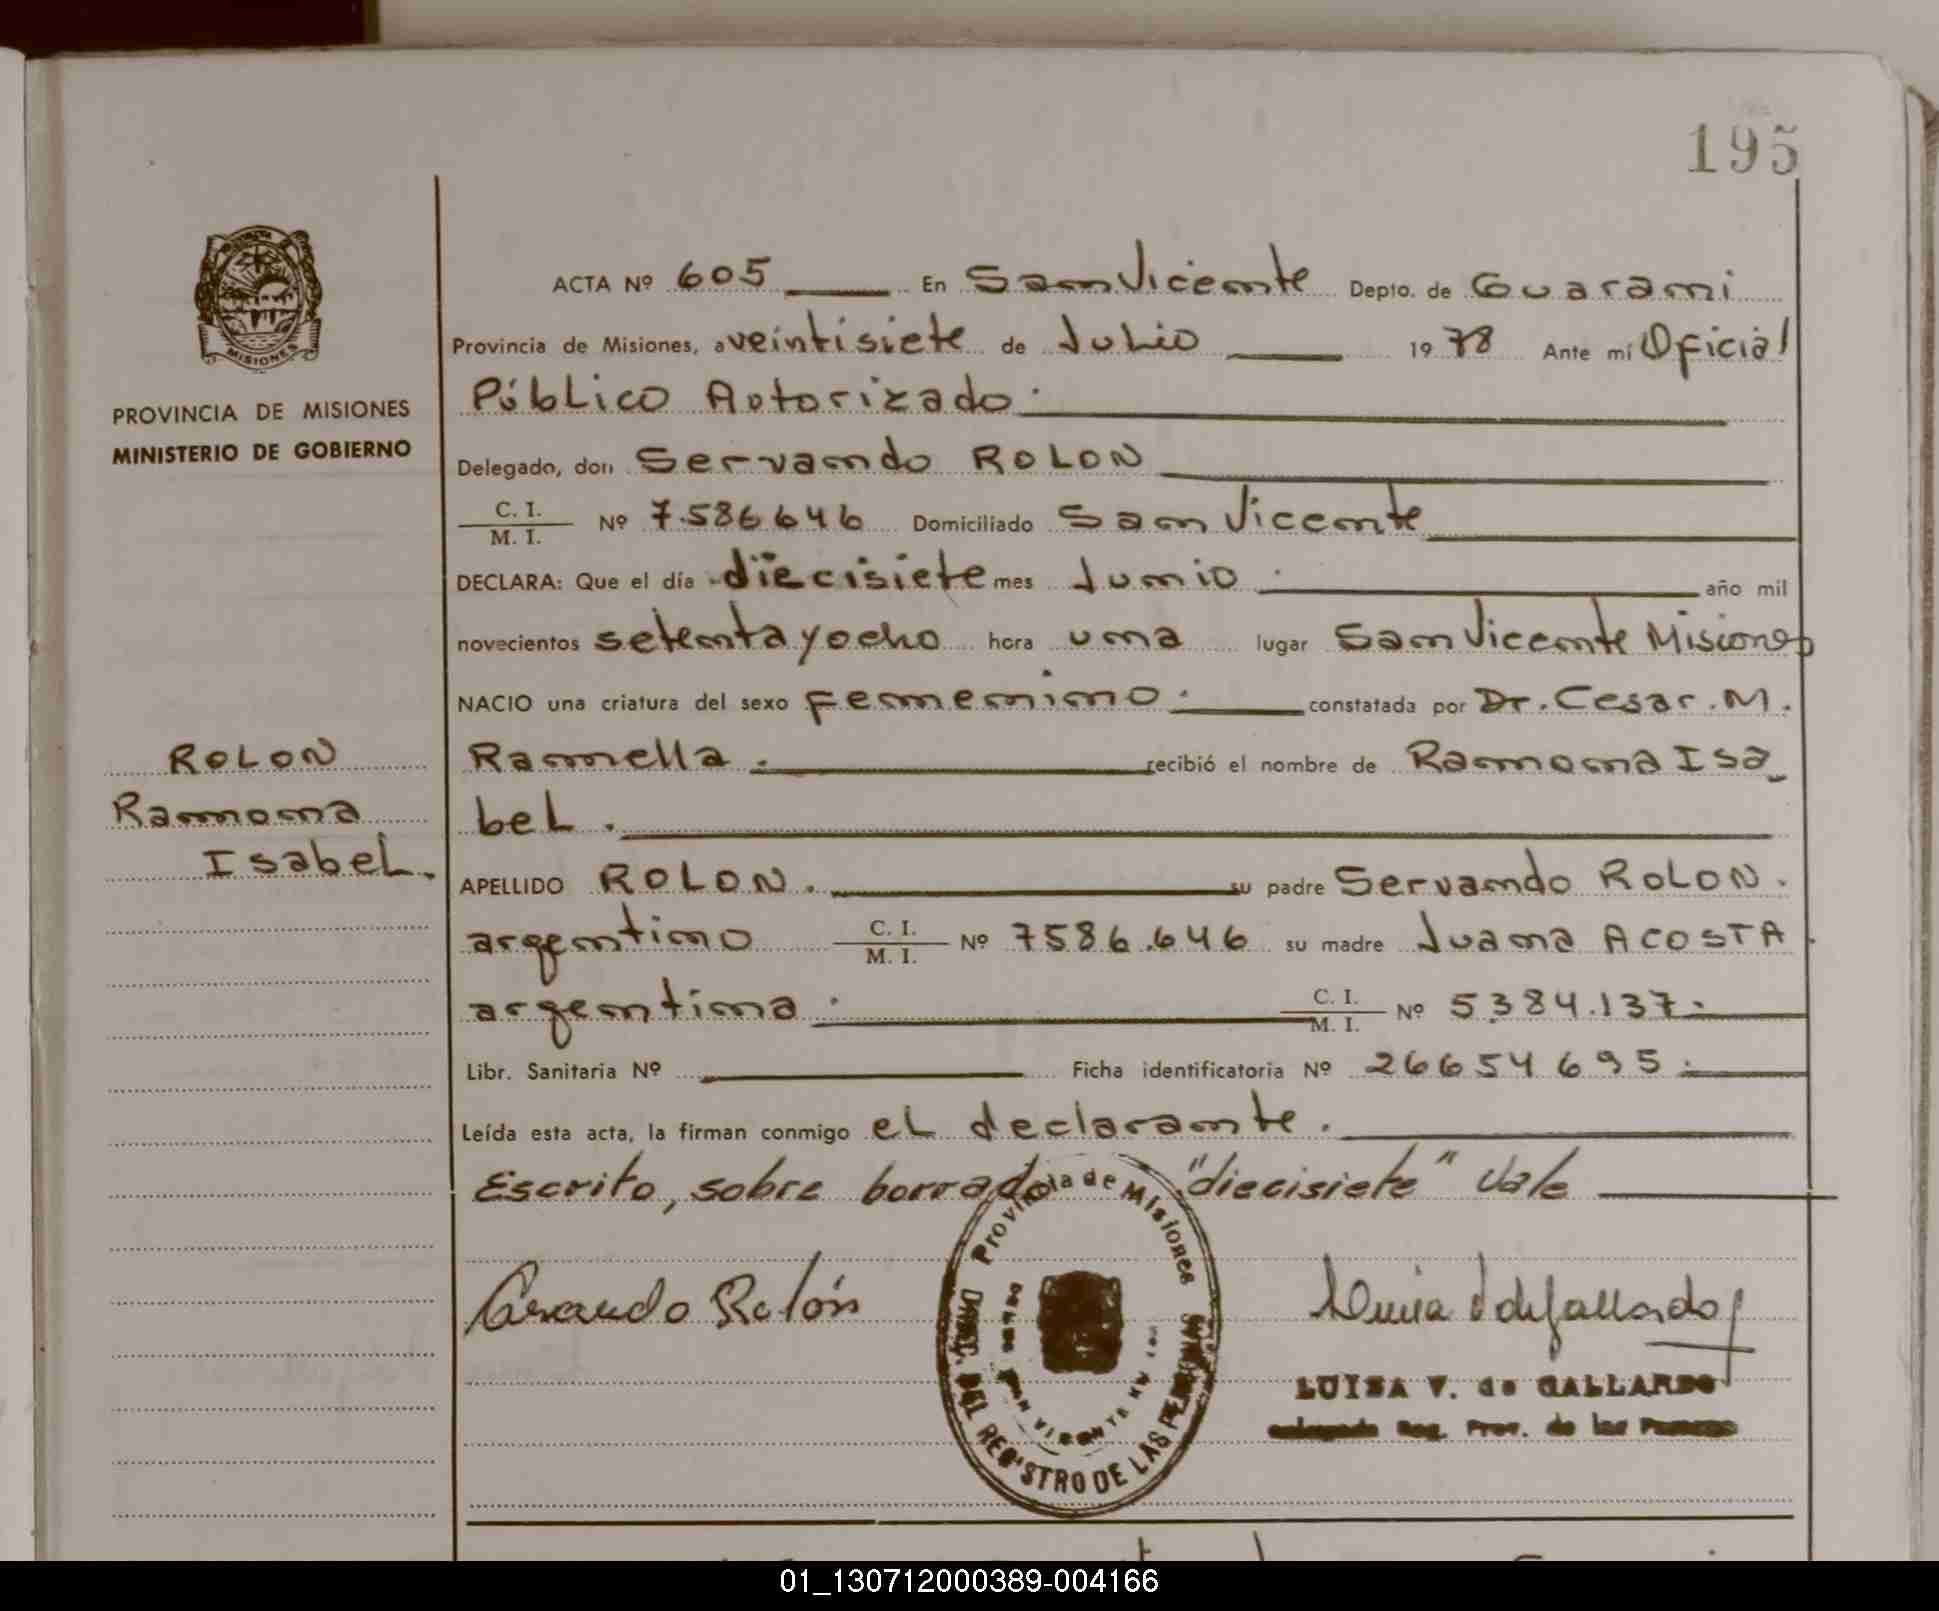 195
MISIONES
PROVINCIA DE MISIONES
MINISTERIO DE GOBIERNO
ROLON
Ramona
Isabel.
ACTA Nº 605 En San Vicente Depto. de Guarani
Provincia de Misiones, a veintisiete de Julio 1978 Ante mí Oficial
Público Autorizado.
Delegado, don Servando ROLON
C. I. / M. I. Nº 7.586646 Domiciliado San Vicente
DECLARA: Que el día diecisiete mes Junio. año mil
novecientos setenta y ocho hora una lugar San Vicente Misiones
NACIO una criatura del sexo femenino. constatada por Dr. Cesar. M.
Ramella. recibió el nombre de Ramona Isa_
bel.
APELLIDO ROLON. su padre Servando ROLON.
argentino C. I. / M. I. Nº 7586.646 su madre Juana ACOSTA.
argentina. C. I. / M. I. Nº 5.384.137.
Libr. Sanitaria Nº Ficha identificatoria Nº 26654695.
Leída esta acta, la firman conmigo el declarante.
Escrito, sobre borrado "diecisiete" Vale
Provincia de Misiones
DIREC. DEL REGISTRO DE LAS PERSONAS
Rolón
LUISA V. de GALLARDO
Reg. Prov. de las Personas
01_130712000389-004166